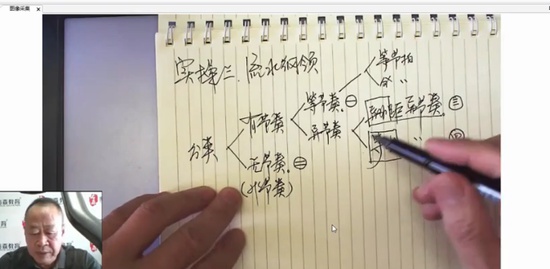 图像采集
实操三、流水纲领
等节拍
等节奏 ㊀ 〃
有节奏
异节奏 异步距异节奏 ㊂
分类
等 〃 ㊃
无节奏 ㊁
(非节奏)